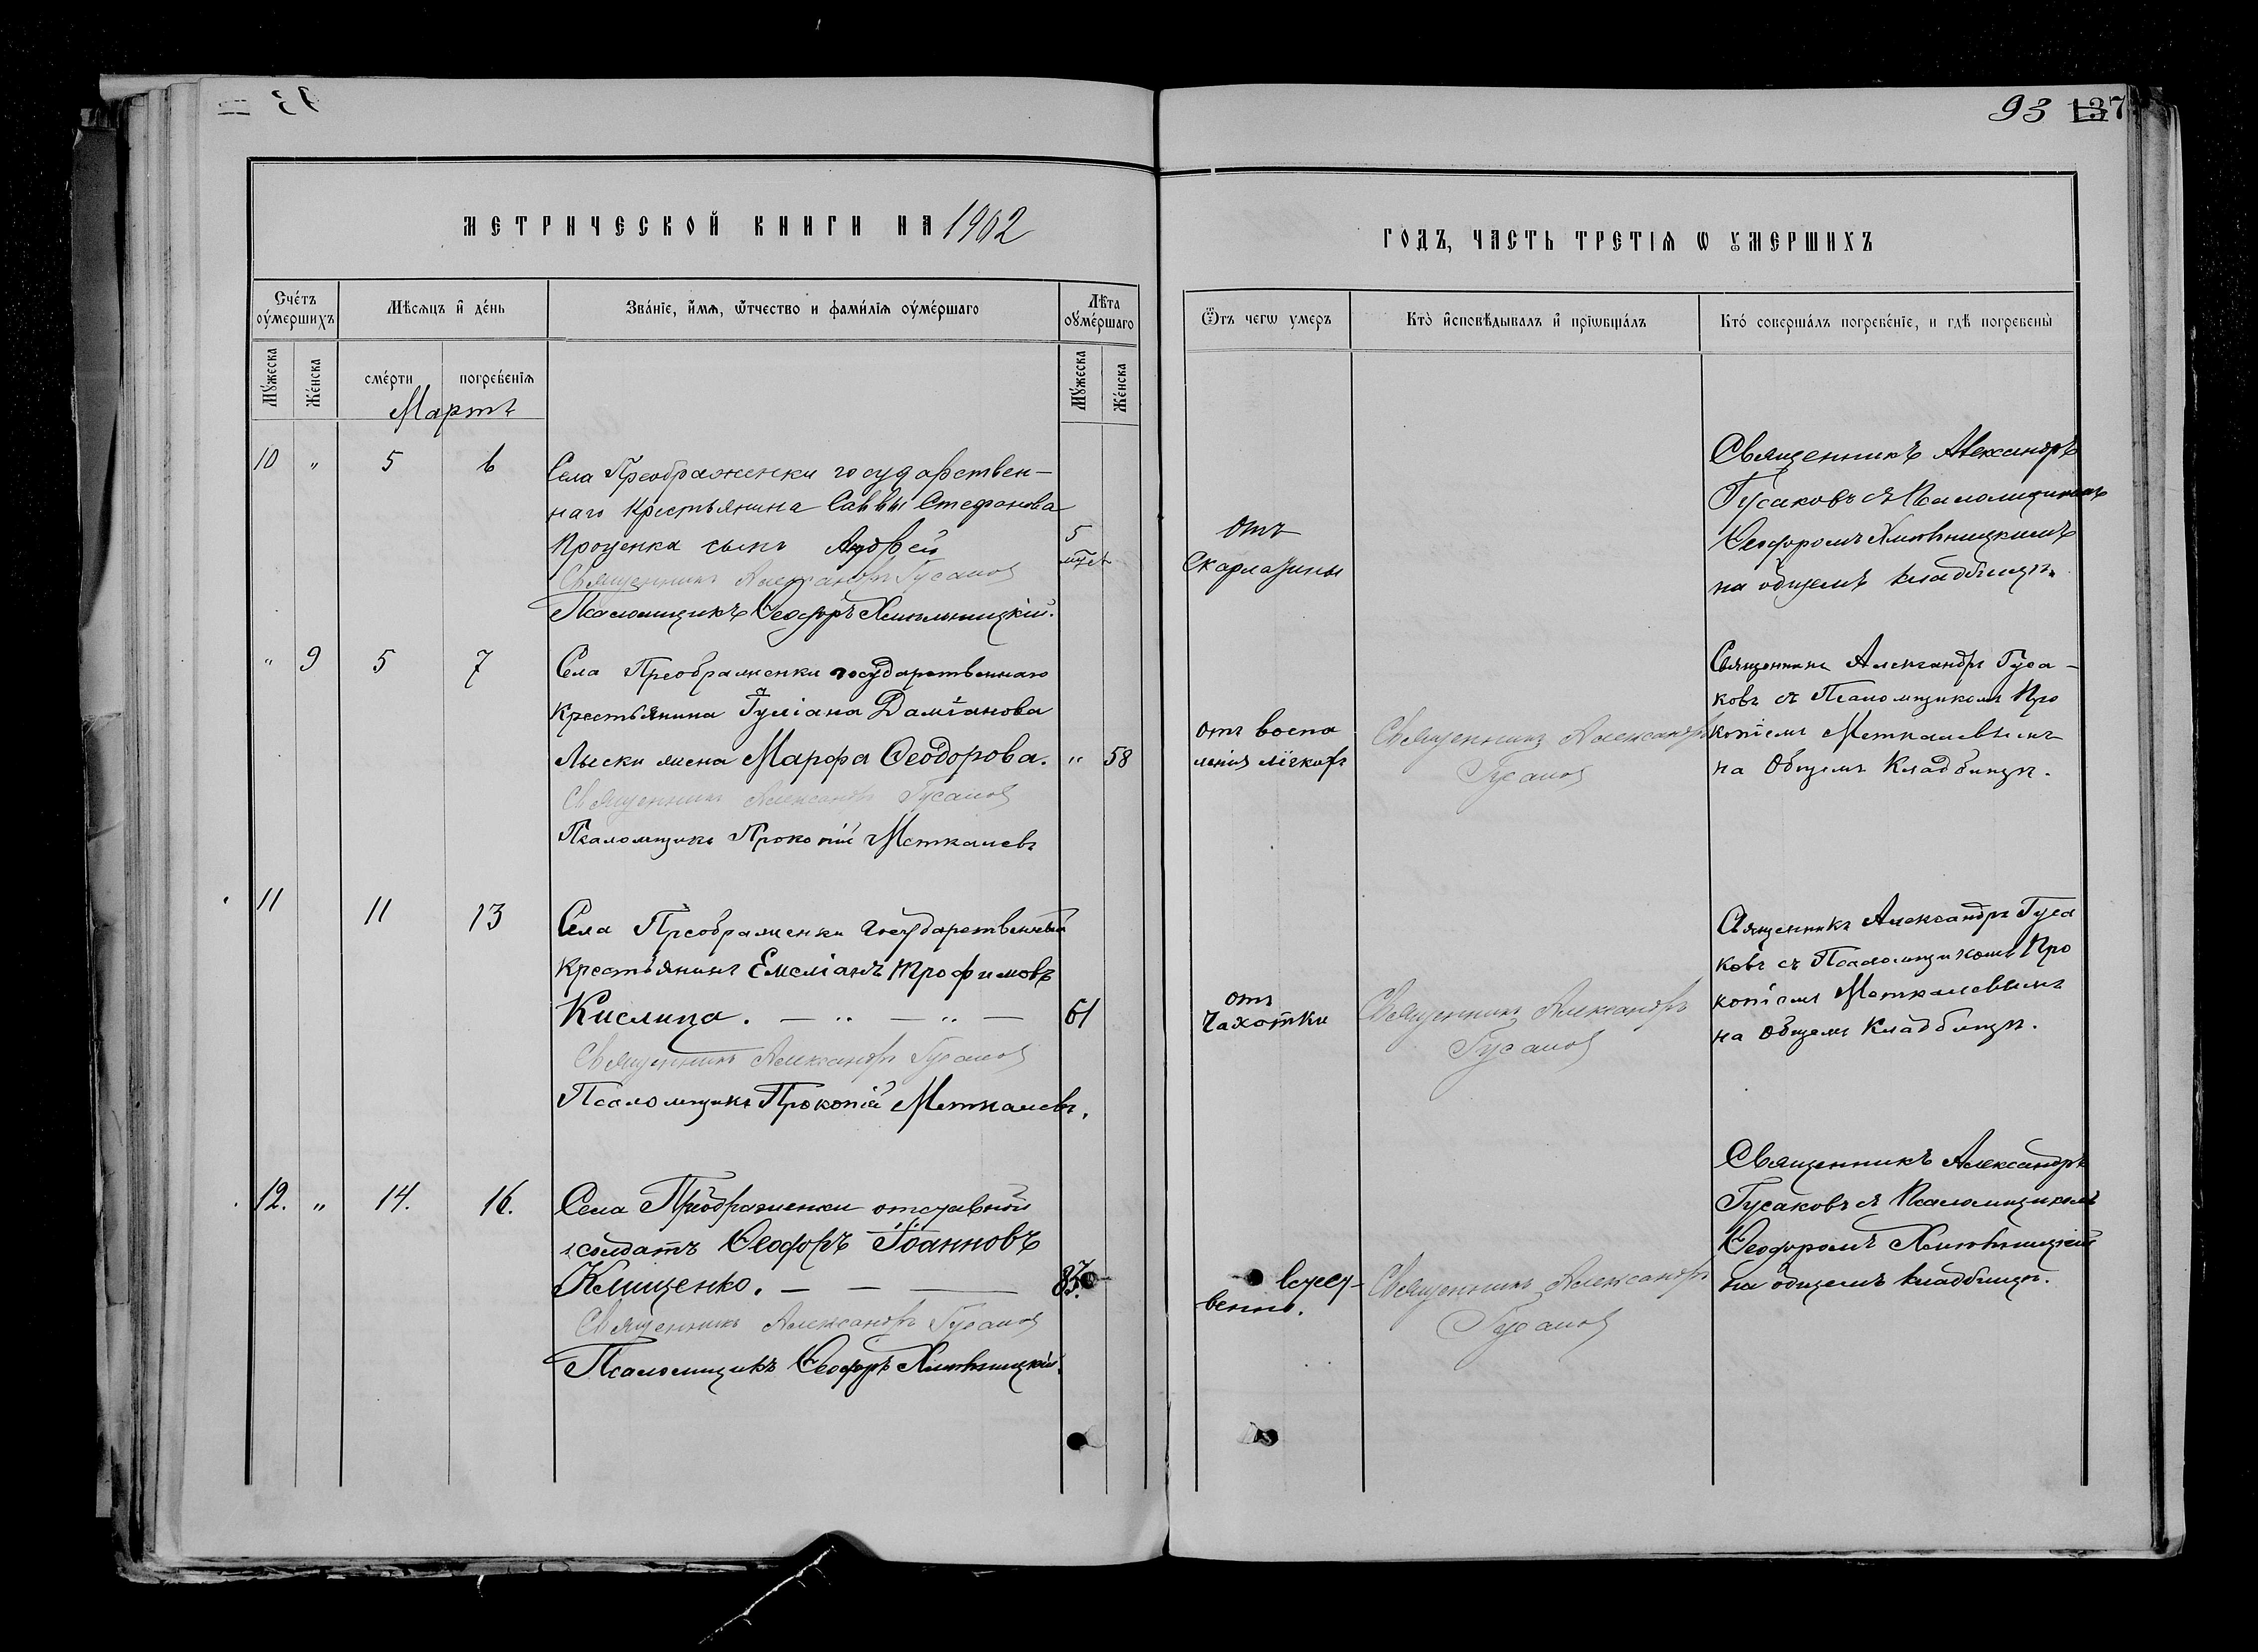 93
93 137
МЕТРИЧЕСКОЙ КНИГИ НА 1902
ГОДЪ, ЧАСТЬ ТРЕТІѦ Ѡ ОУМЕРШИХЪ
Сче́тъ оумершихъ
Мѣсѧцъ и де́нь
Зва́ніе, и́мѧ, ѻ҆́тчество и фами́ліѧ оуме́ршаго
Лѣ́та оуме́ршаго
Ѿ чегѡ умеръ
Кто̀ и҆сповѣ́дывалъ и҆ прїѡбща́лъ
Кто́ соверша́лъ погребе́ніе, и гдѣ̀ погребены̀
Му́жеска
Же́нска
сме́рти
погребе́нїѧ
Му́жеска
Же́нска
Мартъ
10 " 5 6
Села Преображенки государствен-
наго Крестьянина Саввы Стефанова
Проценка сынъ Андрей
5 лѣтъ
Священникъ Александръ Гусаков
Псаломщикъ Ѳеодоръ Хмѣльницкій.
отъ
Скарлатины
Священникъ Александръ
Гусаковъ съ Псаломщикомъ
Ѳеодоромъ Хмѣльницкимъ
на общемъ кладбищѣ.
" 9 5 7
Села Преображенки государственнаго
Крестьянина Іуліана Даміанова
Лыски жена Марфа Ѳеодорова. " 58
Священникъ Александръ Гусаков
Псаломщикъ Прокопій Меткалевъ
отъ воспа
ленія лёгкихъ
Священникъ Александръ
Гусаков
Священникъ Александръ Гуса-
ковъ съ Псаломщикомъ Про
копіемъ Меткалевымъ
на Общемъ Кладбищѣ.
11 11 13
Села Преображенки государственный
Крестьянинъ Емеліанъ Трофимовъ
Кислица. — .. — .. — 61
Священникъ Александръ Гусаков
Псаломщикъ Прокопій Меткалевъ.
отъ
Чахотки
Священникъ Александръ
Гусаков
Священникъ Александръ Гуса
ковъ съ Псаломщикомъ Про
копіемъ Меткалевымъ
на Общемъ Кладбищѣ.
12. " 14. 16.
Села Преображенки отставной
солдатъ Ѳеодоръ Іоанновъ
Клищенко. — — —
Священникъ Александръ Гусаков
Псаломщикъ Ѳеодоръ Хмѣльницкій.
Священникъ Александръ
Гусаков
Священникъ Александръ
Гусаковъ съ Псаломщикомъ
Ѳеодоромъ Хмѣльницкій
на общемъ кладбищѣ.